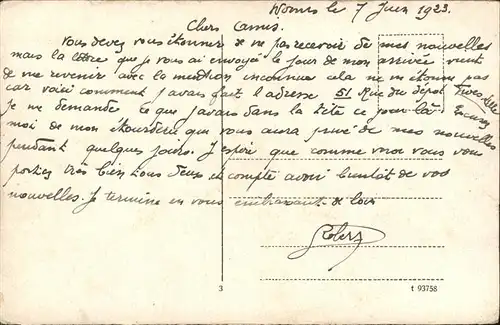 Worms le 7 Juin 1923.
Chers Camis.
Vous devez vous étonner de ne pas recevoir de mes nouvelles
mais la lettre que je vous ai envoyé le jour de mon arrivée vient
de me revenir avec la mention inconnue cela ne m'étonne pas
car voici comment j'avais fait l'adresse 51 Rue du dépot
je me demande ce que j'avais dans la tête ce jour là
moi de mon étourderie que vous aura privé de mes nouvelles
pendant quelques jours. J'espère que comme moi vous vous
portiez très bien tous deux et compte avoir bientôt de vos
nouvelles. Je termine en vous embrassant de loin
Robert
3
t 93758